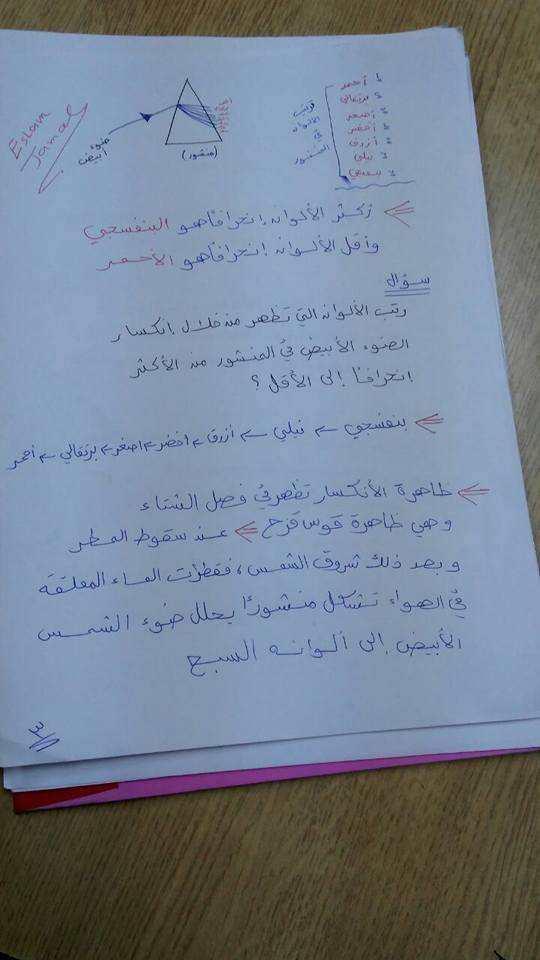 Eslam
Jamal
ضوء
أبيض
(منشور)
ترتيب
الألوان
في
المنشور
أحمر
برتقالي
أصفر
أخضر
أزرق
نيلي
بنفسجي
أكثر الألوان انحرافًا هو البنفسجي
وأقل الألوان انحرافًا هو الأحمر
سؤال
رتب الألوان التي تظهر من خلال انكسار
الضوء الأبيض في المنشور من الأكثر
انحرافًا إلى الأقل؟
بنفسجي ← نيلي ← أزرق ← أخضر ← أصفر ← برتقالي ← أحمر
ظاهرة الأنكسار تظهر في فصل الشتاء
وهي ظاهرة قوس قزح ⇐ عند سقوط المطر
وبعد ذلك شروق الشمس، فقطرات الماء المعلقة
في الهواء تشكل منشورًا يحلل ضوء الشمس
الأبيض إلى ألوانه السبع
٣